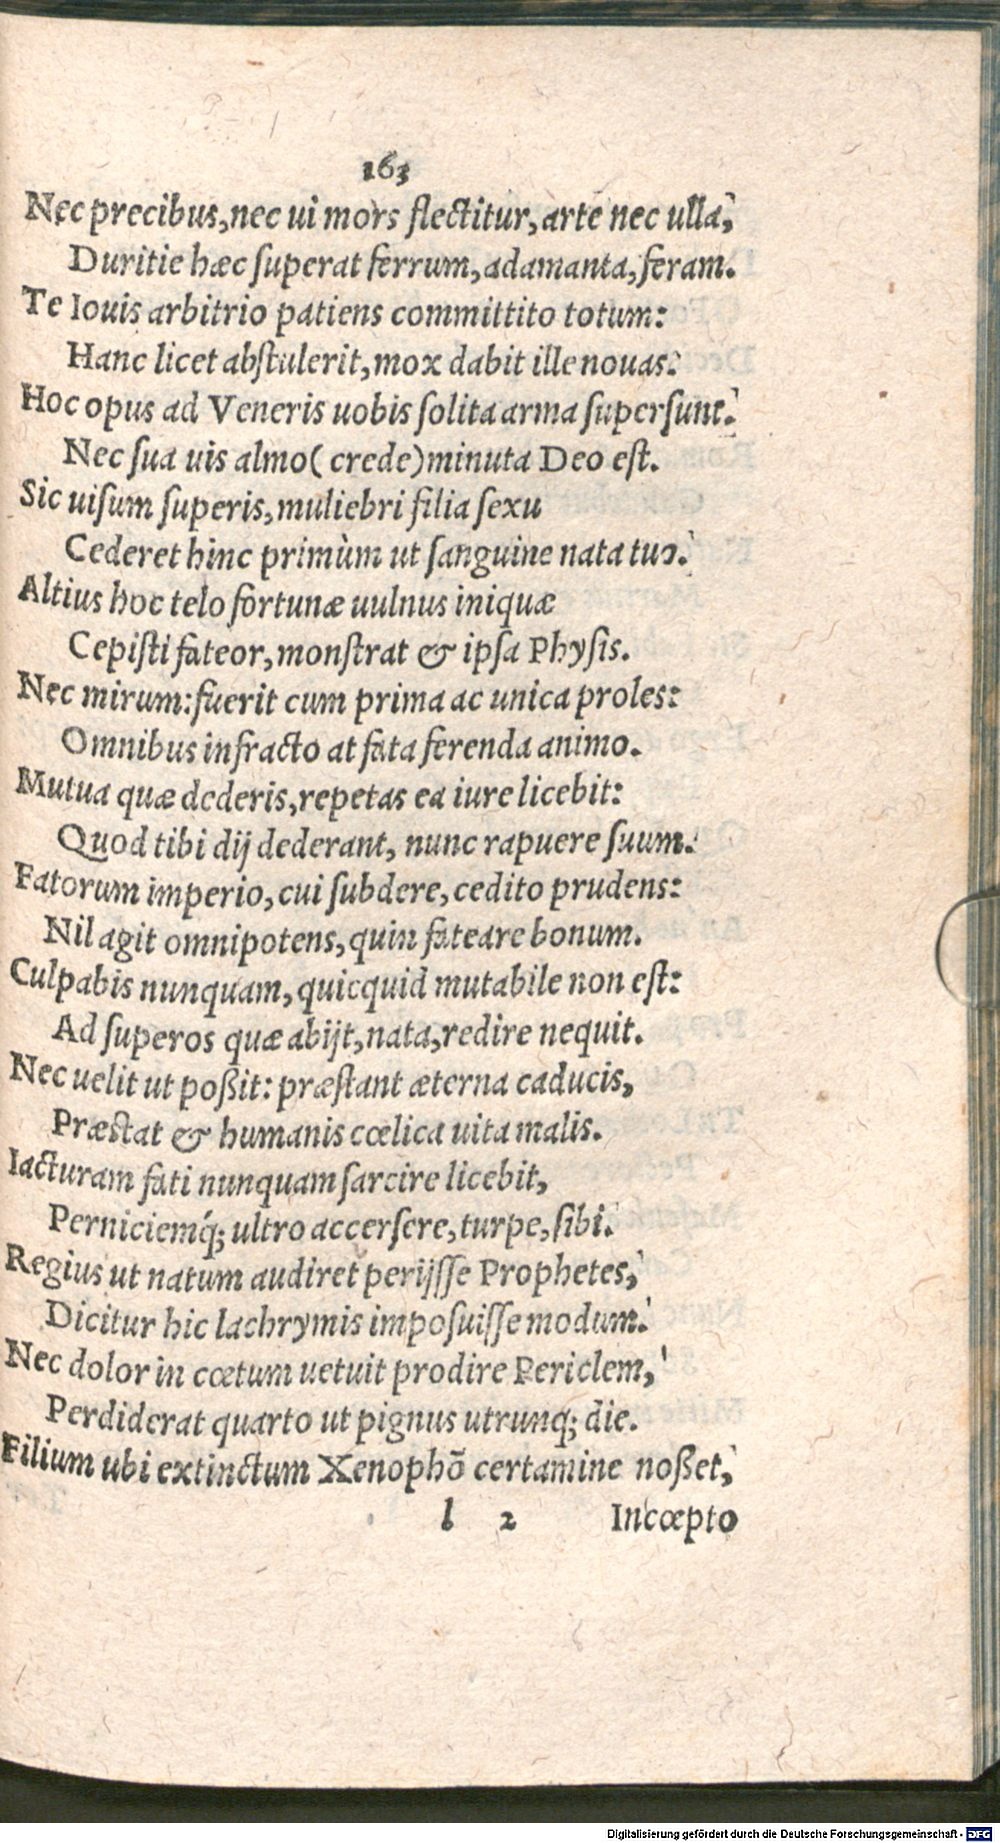 163
Nec precibus, nec ui mors flectitur, arte nec ulla,
Duritie hæc ſuperat ferrum, adamanta, feram.
Te Iouis arbitrio patiens committito totum:
Hanc licet abſtulerit, mox dabit ille nouas.
Hoc opus ad Veneris uobis ſolita arma ſuperſunt.
Nec ſua uis almo (crede) minuta Deo eſt.
Sic uiſum ſuperis, muliebri filia ſexu
Cederet hinc primùm ut ſanguine nata tuo.
Altius hoc telo fortunæ uulnus iniquæ
Cepiſti fateor, monſtrat & ipſa Phyſis.
Nec mirum: fuerit cum prima ac unica proles:
Omnibus infracto at fata ferenda animo.
Mutua quæ dederis, repetas ea iure licebit:
Quod tibi dij dederant, nunc rapuere ſuum.
Fatorum imperio, cui ſubdere, cedito prudens:
Nil agit omnipotens, quin fateare bonum.
Culpabis nunquam, quicquid mutabile non eſt:
Ad ſuperos quæ abijt, nata, redire nequit.
Nec uelit ut poßit: præſtant æterna caducis,
Præſtat & humanis cœlica uita malis.
Iacturam fati nunquam ſarcire licebit,
Perniciemq́; ultro accerſere, turpe, ſibi.
Regius ut natum audiret perijſſe Prophetes,
Dicitur hic lachrymis impoſuiſſe modum.
Nec dolor in cœtum uetuit prodire Periclem,
Perdiderat quarto ut pignus utrunq; die.
Filium ubi extinctum Xenophõ certamine noßet,
l 2 Incœpto
Digitalisierung gefördert durch die Deutsche Forschungsgemeinschaft - DFG